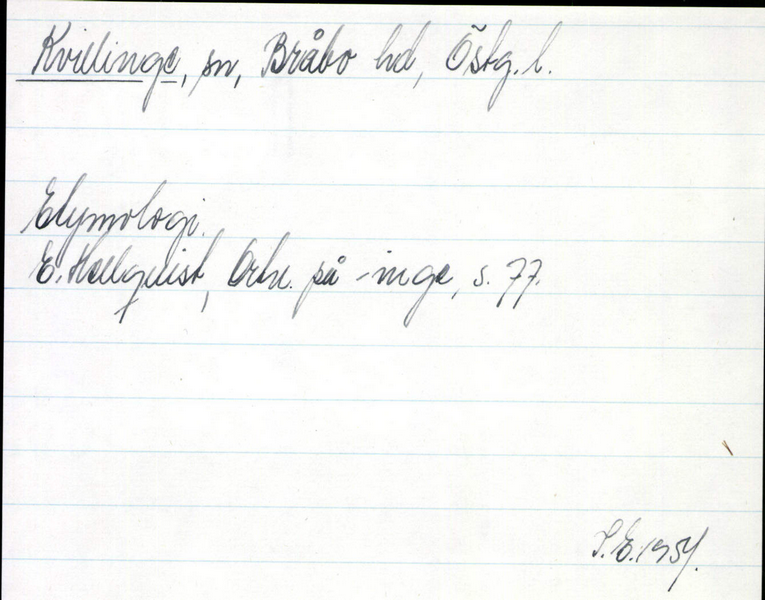 Kvillinge, sn, Bråbo hd, Östg. l.
Etymologi.
E. Hellquist, Ortn. på -inge, s. 77.
S.E. 1954.